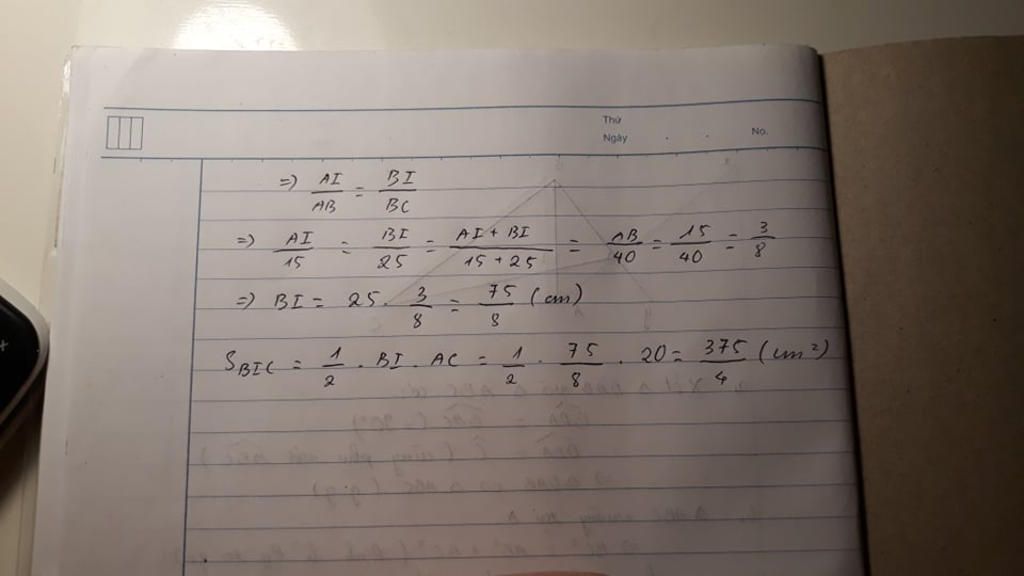 Thứ
Ngày . . No.
=) AI/AB = BI/BC
=) AI/15 = BI/25 = AI + BI/15 + 25 = AB/40 = 15/40 = 3/8
=) BI = 25 . 3/8 = 75/8 (cm)
S_BIC = 1/2 . BI . AC = 1/2 . 75/8 . 20 = 375/4 (cm²)